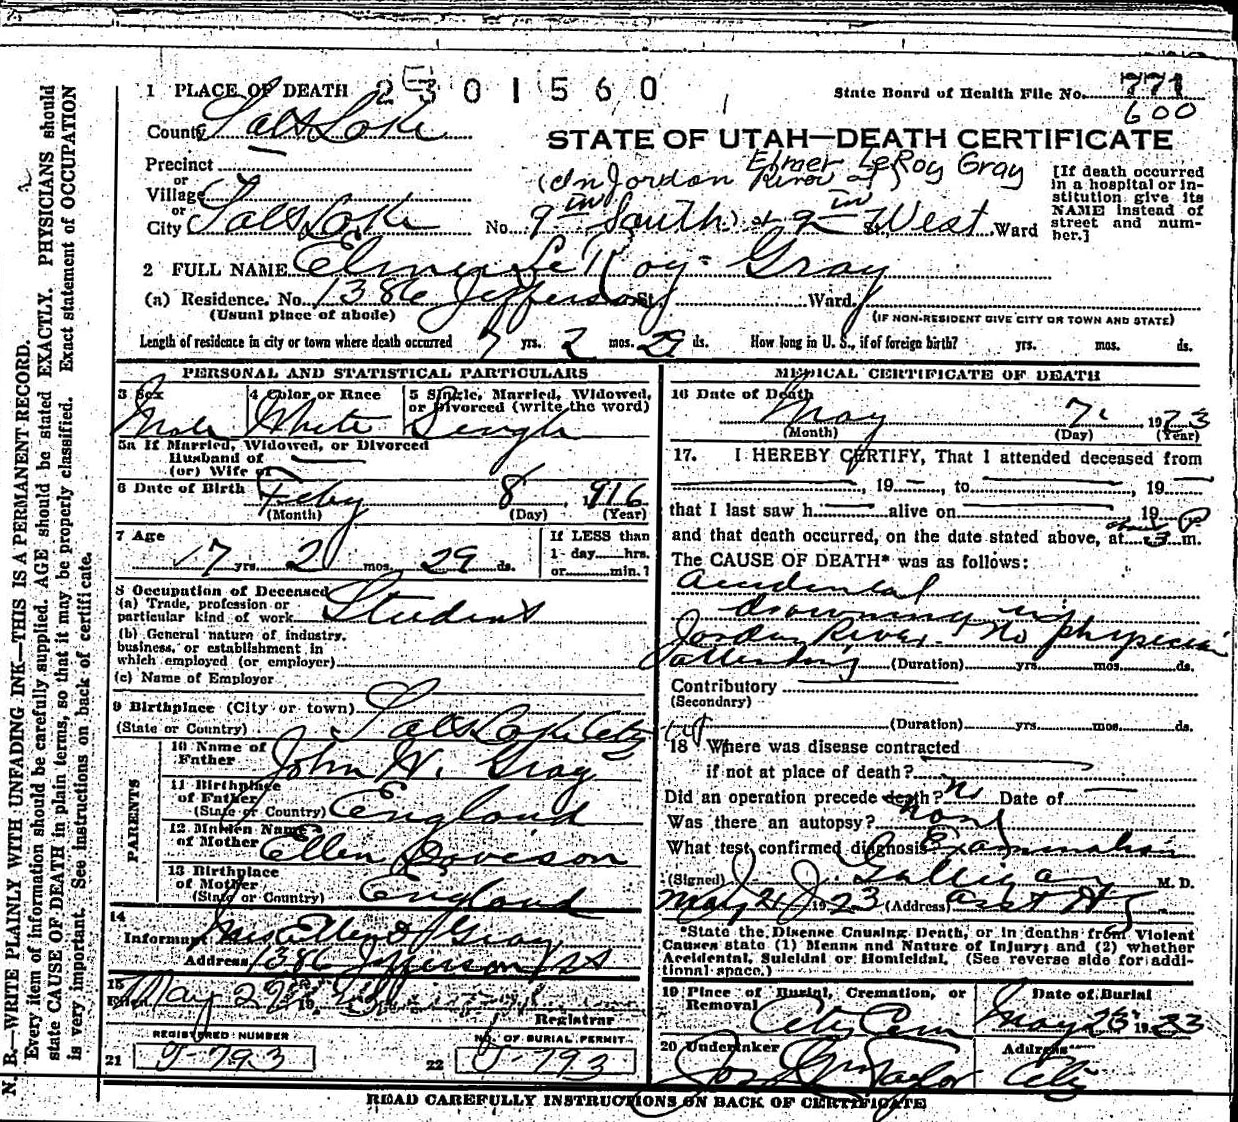 1 PLACE OF DEATH 2301560 State Board of Health File No. 771
600
County Salt Lake
STATE OF UTAH—DEATH CERTIFICATE
Elmer LeRoy Gray
Precinct
or
Village
or
City Salt Lake No. 9th South & 9th West St., Ward
(In Jordan River at)
[If death occurred in a hospital or institution give its NAME instead of street and number.]
2 FULL NAME Elmer Le Roy Gray
(a) Residence. No. 1386 Jefferson St. Ward.
(Usual place of abode) (IF NON-RESIDENT GIVE CITY OR TOWN AND STATE)
Length of residence in city or town where death occurred 7 yrs. 2 mos. 29 ds. How long in U. S., if of foreign birth? yrs. mos. ds.
PERSONAL AND STATISTICAL PARTICULARS
3 Sex Male
4 Color or Race White
5 Single, Married, Widowed, or Divorced (write the word) Single
5a If Married, Widowed, or Divorced
Husband of
(or) Wife of
6 Date of Birth Feby 8 1916
(Month) (Day) (Year)
7 Age 7 yrs. 2 mos. 29 ds.
If LESS than
1 day hrs.
or min.?
8 Occupation of Deceased
(a) Trade, profession or
particular kind of work Student
(b) General nature of industry,
business, or establishment in
which employed (or employer)
(c) Name of Employer
9 Birthplace (City or town) Salt Lake City
(State or Country)
PARENTS
10 Name of Father John W. Gray
11 Birthplace of Father England
(State or Country)
12 Maiden Name of Mother Ellen Davison
13 Birthplace of Mother England
(State or Country)
14
Informant Mrs Ellen Gray
Address 1386 Jefferson St
15
Filed May 22 19
Registrar
REGISTERED NUMBER NO. OF BURIAL PERMIT
21 J-793 22 J-793
MEDICAL CERTIFICATE OF DEATH
16 Date of Death May 7, 1923
(Month) (Day) (Year)
17. I HEREBY CERTIFY, That I attended deceased from
, 19 , to , 19
that I last saw h alive on 19
and that death occurred, on the date stated above, at about 3 P m.
The CAUSE OF DEATH* was as follows:
Accidental
drowning in
Jordan River. No physician
attending (Duration) yrs. mos. ds.
Contributory
(Secondary)
(Duration) yrs. mos. ds.
18 Where was disease contracted
if not at place of death?
Did an operation precede death? No Date of
Was there an autopsy? none
What test confirmed diagnosis? Examination
(Signed) J. J. Galligan M. D.
May 21 1923 (Address)
*State the Disease Causing Death, or in deaths from Violent
Causes state (1) Means and Nature of Injury; and (2) whether
Accidental, Suicidal or Homicidal. (See reverse side for addi-
tional space.)
19 Place of Burial, Cremation, or Removal City Cem
Date of Burial May 23 1923
20 Undertaker Jos Wm Taylor
Address City
READ CAREFULLY INSTRUCTIONS ON BACK OF CERTIFICATE
N. B.—WRITE PLAINLY WITH UNFADING INK—THIS IS A PERMANENT RECORD.
Every item of information should be carefully supplied. AGE should be stated EXACTLY. PHYSICIANS should
state CAUSE OF DEATH in plain terms, so that it may be properly classified. Exact statement of OCCUPATION
is very important. See instructions on back of certificate.